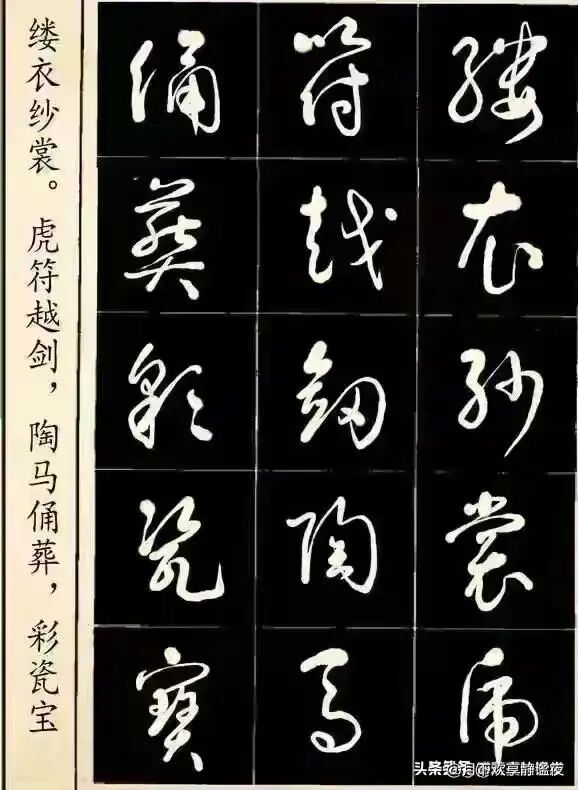 缕衣纱裳。虎符越剑，陶马俑葬，彩瓷宝
缕衣纱裳虎
符越剑陶马
俑葬彩瓷宝